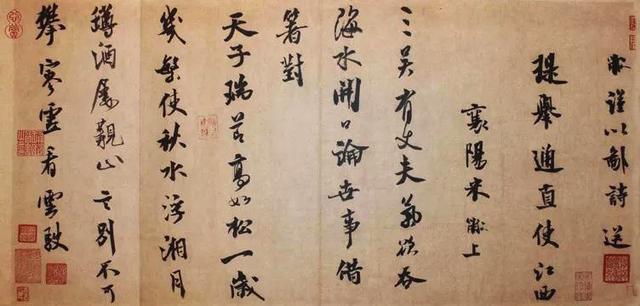 黻謹以鄙詩送
提舉通直使江西
襄陽米黻上
三吳有丈夫氣欲吞
海水開口論世事借
箸對
天子瑞節高如松一歲
幾繁使秋水浮湘月
罇酒屢覯止言別不可
攀寒霄看雲駛